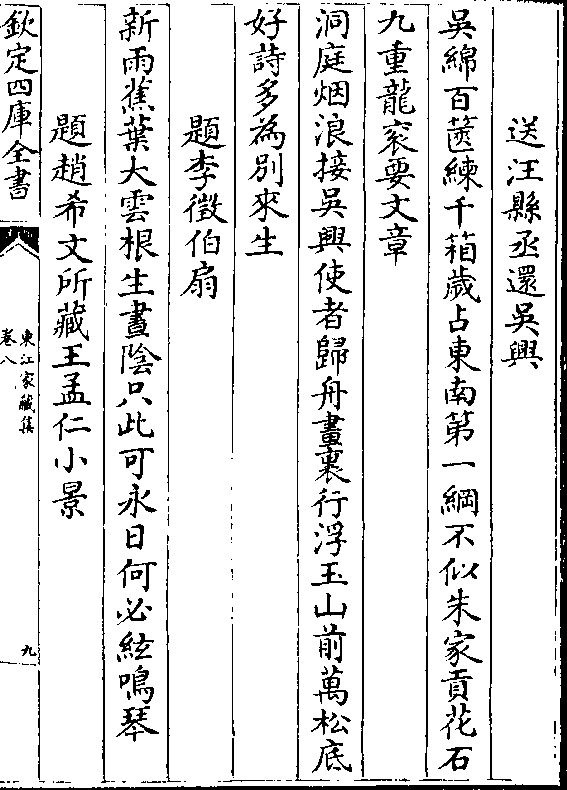 送汪縣丞還吳興
吳綿百篋練千箱歲占東南第一綱不似朱家貢花石
九重龍衮要文章
洞庭烟浪接吳興使者歸舟畫裏行浮玉山前萬松底
好詩多為別來生
題李徵伯扇
新雨蕉葉大雲根生晝陰只此可永日何必絃鳴琴
題趙希文所藏王孟仁小景
欽定四庫全書
東江家藏集
卷八
九